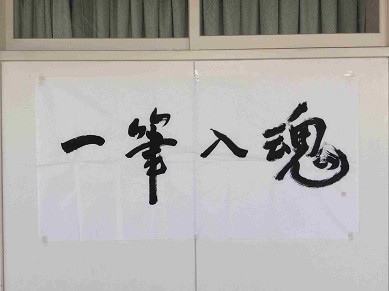 一筆入魂